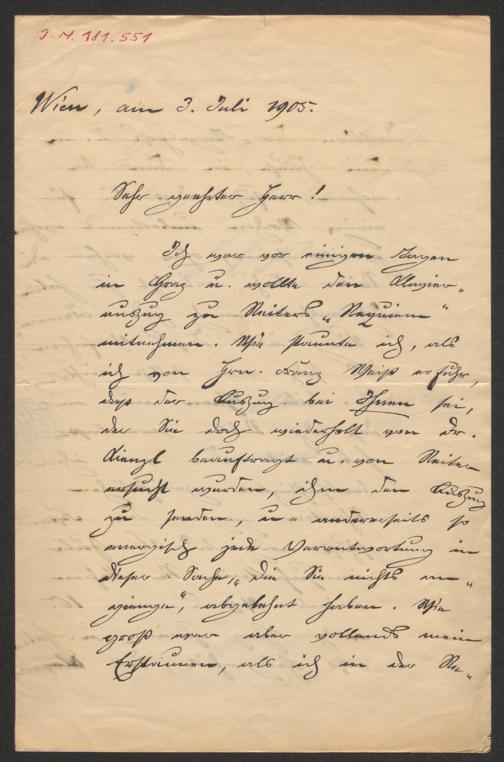 J. N. 181.551
Wien, am 3. Juli 1905.
Sehr geehrter Herr!
Ich war vor einigen Tagen
in Graz u. wollte den Clavier-
auszug zu Reiters „Requiem“
mitnehmen. Wie staunte ich, als
ich von Hrn. Franz Weiß erfuhr,
daß der Auszug bei Ihnen sei,
der Sie doch wiederholt von Dr.
Kienzl beauftragt u. von Reiter
ersucht wurden, ihm den Auszug
zu senden, u. andererseits so
energisch jede Verantwortung in
dieser Sache, „die Sie nichts an-
gienge“, abgelehnt haben. Wie
groß war aber vollends mein
Erstaunen, als ich in der Re-